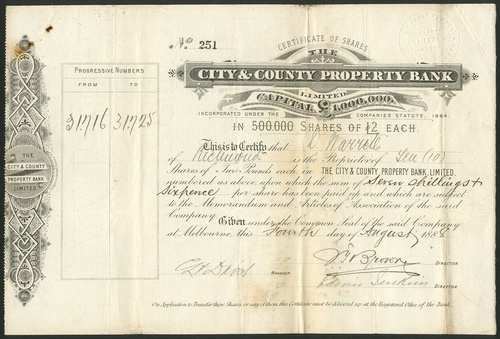 No. 251
CERTIFICATE OF SHARES
THE
CITY & COUNTY PROPERTY BANK
LIMITED.
CAPITAL £1,000,000.
INCORPORATED UNDER THE COMPANIES STATUTE, 1864.
IN 500,000 SHARES OF £2 EACH.
PROGRESSIVE NUMBERS
FROM TO
31716 31725
This is to Certify that Warrell
of Richmond is the Proprietor of Ten (10)
Shares of Two Pounds each in THE CITY & COUNTY PROPERTY BANK, LIMITED.
numbered as above, upon which the sum of Seven shillings &
Sixpence per share has been paid and which are subject
to the Memorandum and Articles of Association of the said
Company Given under the Common Seal of the said Company
at Melbourne, this Fourth day of August 1888
Brown DIRECTOR
MANAGER
Jenkins DIRECTOR
On Application to Transfer these Shares, or any of them, this Certificate must be delivered up at the Registered Office of the Bank.
THE
CITY & COUNTY
PROPERTY BANK
LIMITED.